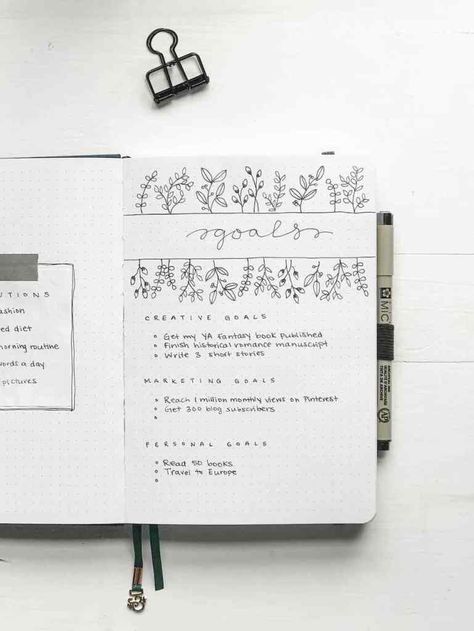 UTIONS
ashion
ed diet
morning routine
words a day
pictures
goals
CREATIVE GOALS
Get my YA Fantasy book published
Finish historical romance manuscript
Write 3 short stories
MARKETING GOALS
Reach 1 million monthly views on Pinterest
Get 300 blog subscribers
PERSONAL GOALS
Read 50 books
Travel to Europe
MIC